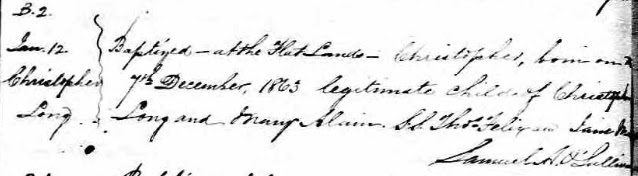 B. 2.
Jan. 12 Baptized – at the Flat Lands – Christopher, born on
Christopher 7th December, 1863 legitimate child of Christopher
Long Long and Mary Alain. Sd. Thos. Felix and Jane
Samuel A. O'Sullivan